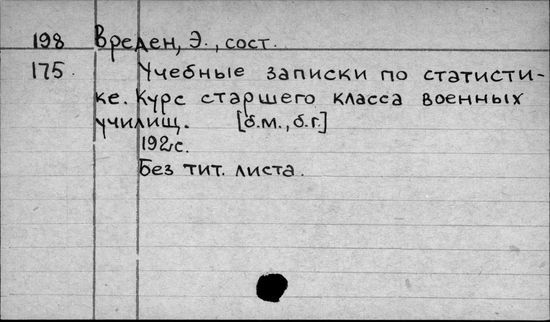 198 Вреден, Э., сост.
175. Учебные записки по статисти-
ке. Курс старшего класса военных
училищ. [б.м., б.г.]
192с.
Без тит. листа.